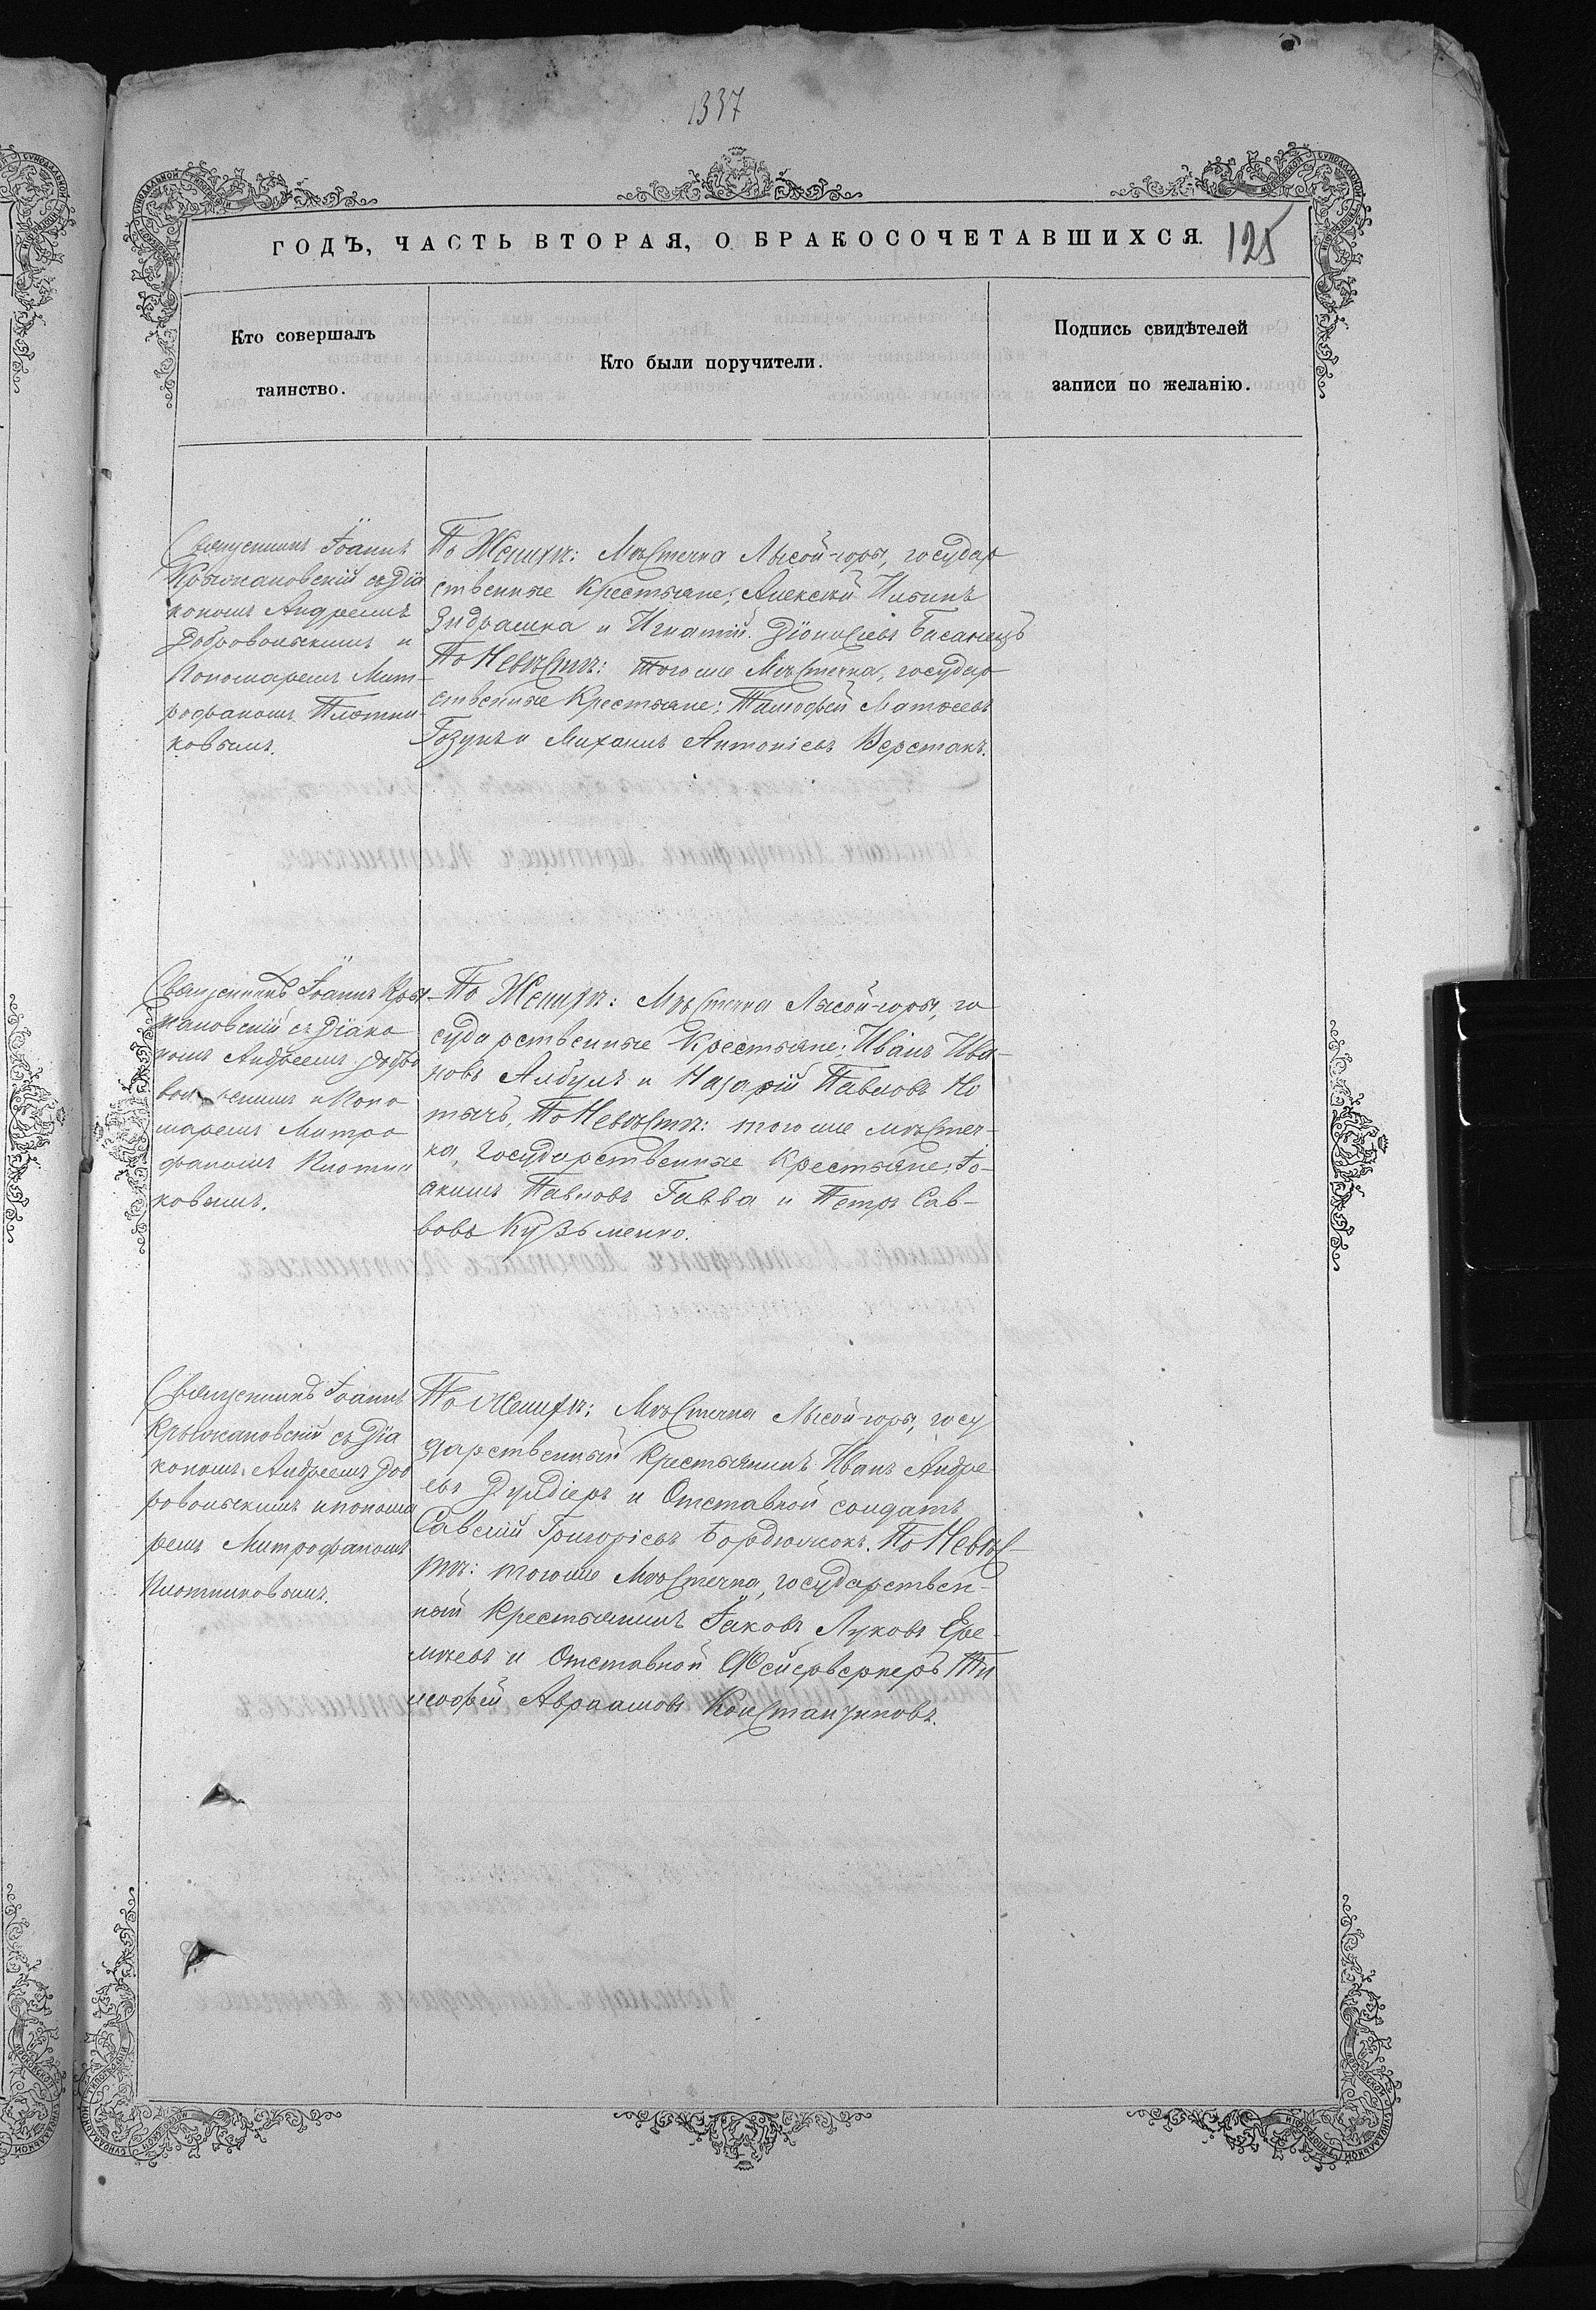 1337
ГОДЪ, ЧАСТЬ ВТОРАЯ, О БРАКОСОЧЕТАВШИХСЯ.
125
Кто совершалъ
таинство.
Кто были поручители.
Подпись свидѣтелей
записи по желанію.
Священникъ Іоаннъ
Крыжановскій съ Діа
кономъ Андреемъ
Добровольскимъ и
Пономаремъ Мит-
рофаномъ Плотни-
ковымъ.
По Женихѣ: Мѣстечка Лысой-горы, государ
ственные Крестьяне; Алексѣй Ильинъ
Зидрашка и Игнатій Діонисіевъ Басанецъ
По Невѣстѣ: того же Мѣстечка, государ
ственные Крестьяне: Тимофей Матѳеевъ
Гозунъ и Михаилъ Антоніевъ Верстакъ.
Священникъ Іоаннъ Кры-
жановскій съ Діако
номъ Андреемъ Добро
вольскимъ и Поно
маремъ Митро
фаномъ Плотни
ковымъ.
По Женихѣ: Мѣстечка Лысой-горы, го
сударственные Крестьяне: Иванъ Ива-
новъ Албулъ и Назарій Павловъ
По Невѣстѣ: того же мѣстеч-
ка, государственные Крестьяне: Іо-
акимъ Павловъ Гавва и Петръ Сав-
вовъ Кузьменко.
Священникъ Іоаннъ
Крыжановскій съ Діа
кономъ Андреемъ Доб
ровольскимъ и понома
ремъ Митрофаномъ
Плотниковымъ.
По Женихѣ: Мѣстечка Лысой-горы, госу
дарственный Крестьянинъ Иванъ Андре-
евъ Дундіеръ и Отставной солдатъ
Савелій Григоріевъ Бордюжокъ. По Невѣс-
тѣ: того же Мѣстечка, государствен-
ный Крестьянинъ Іаковъ Луковъ Ере-
мѣевъ и Отставной Фейерверкеръ Ти
мофей Авраамовъ Константиновъ.